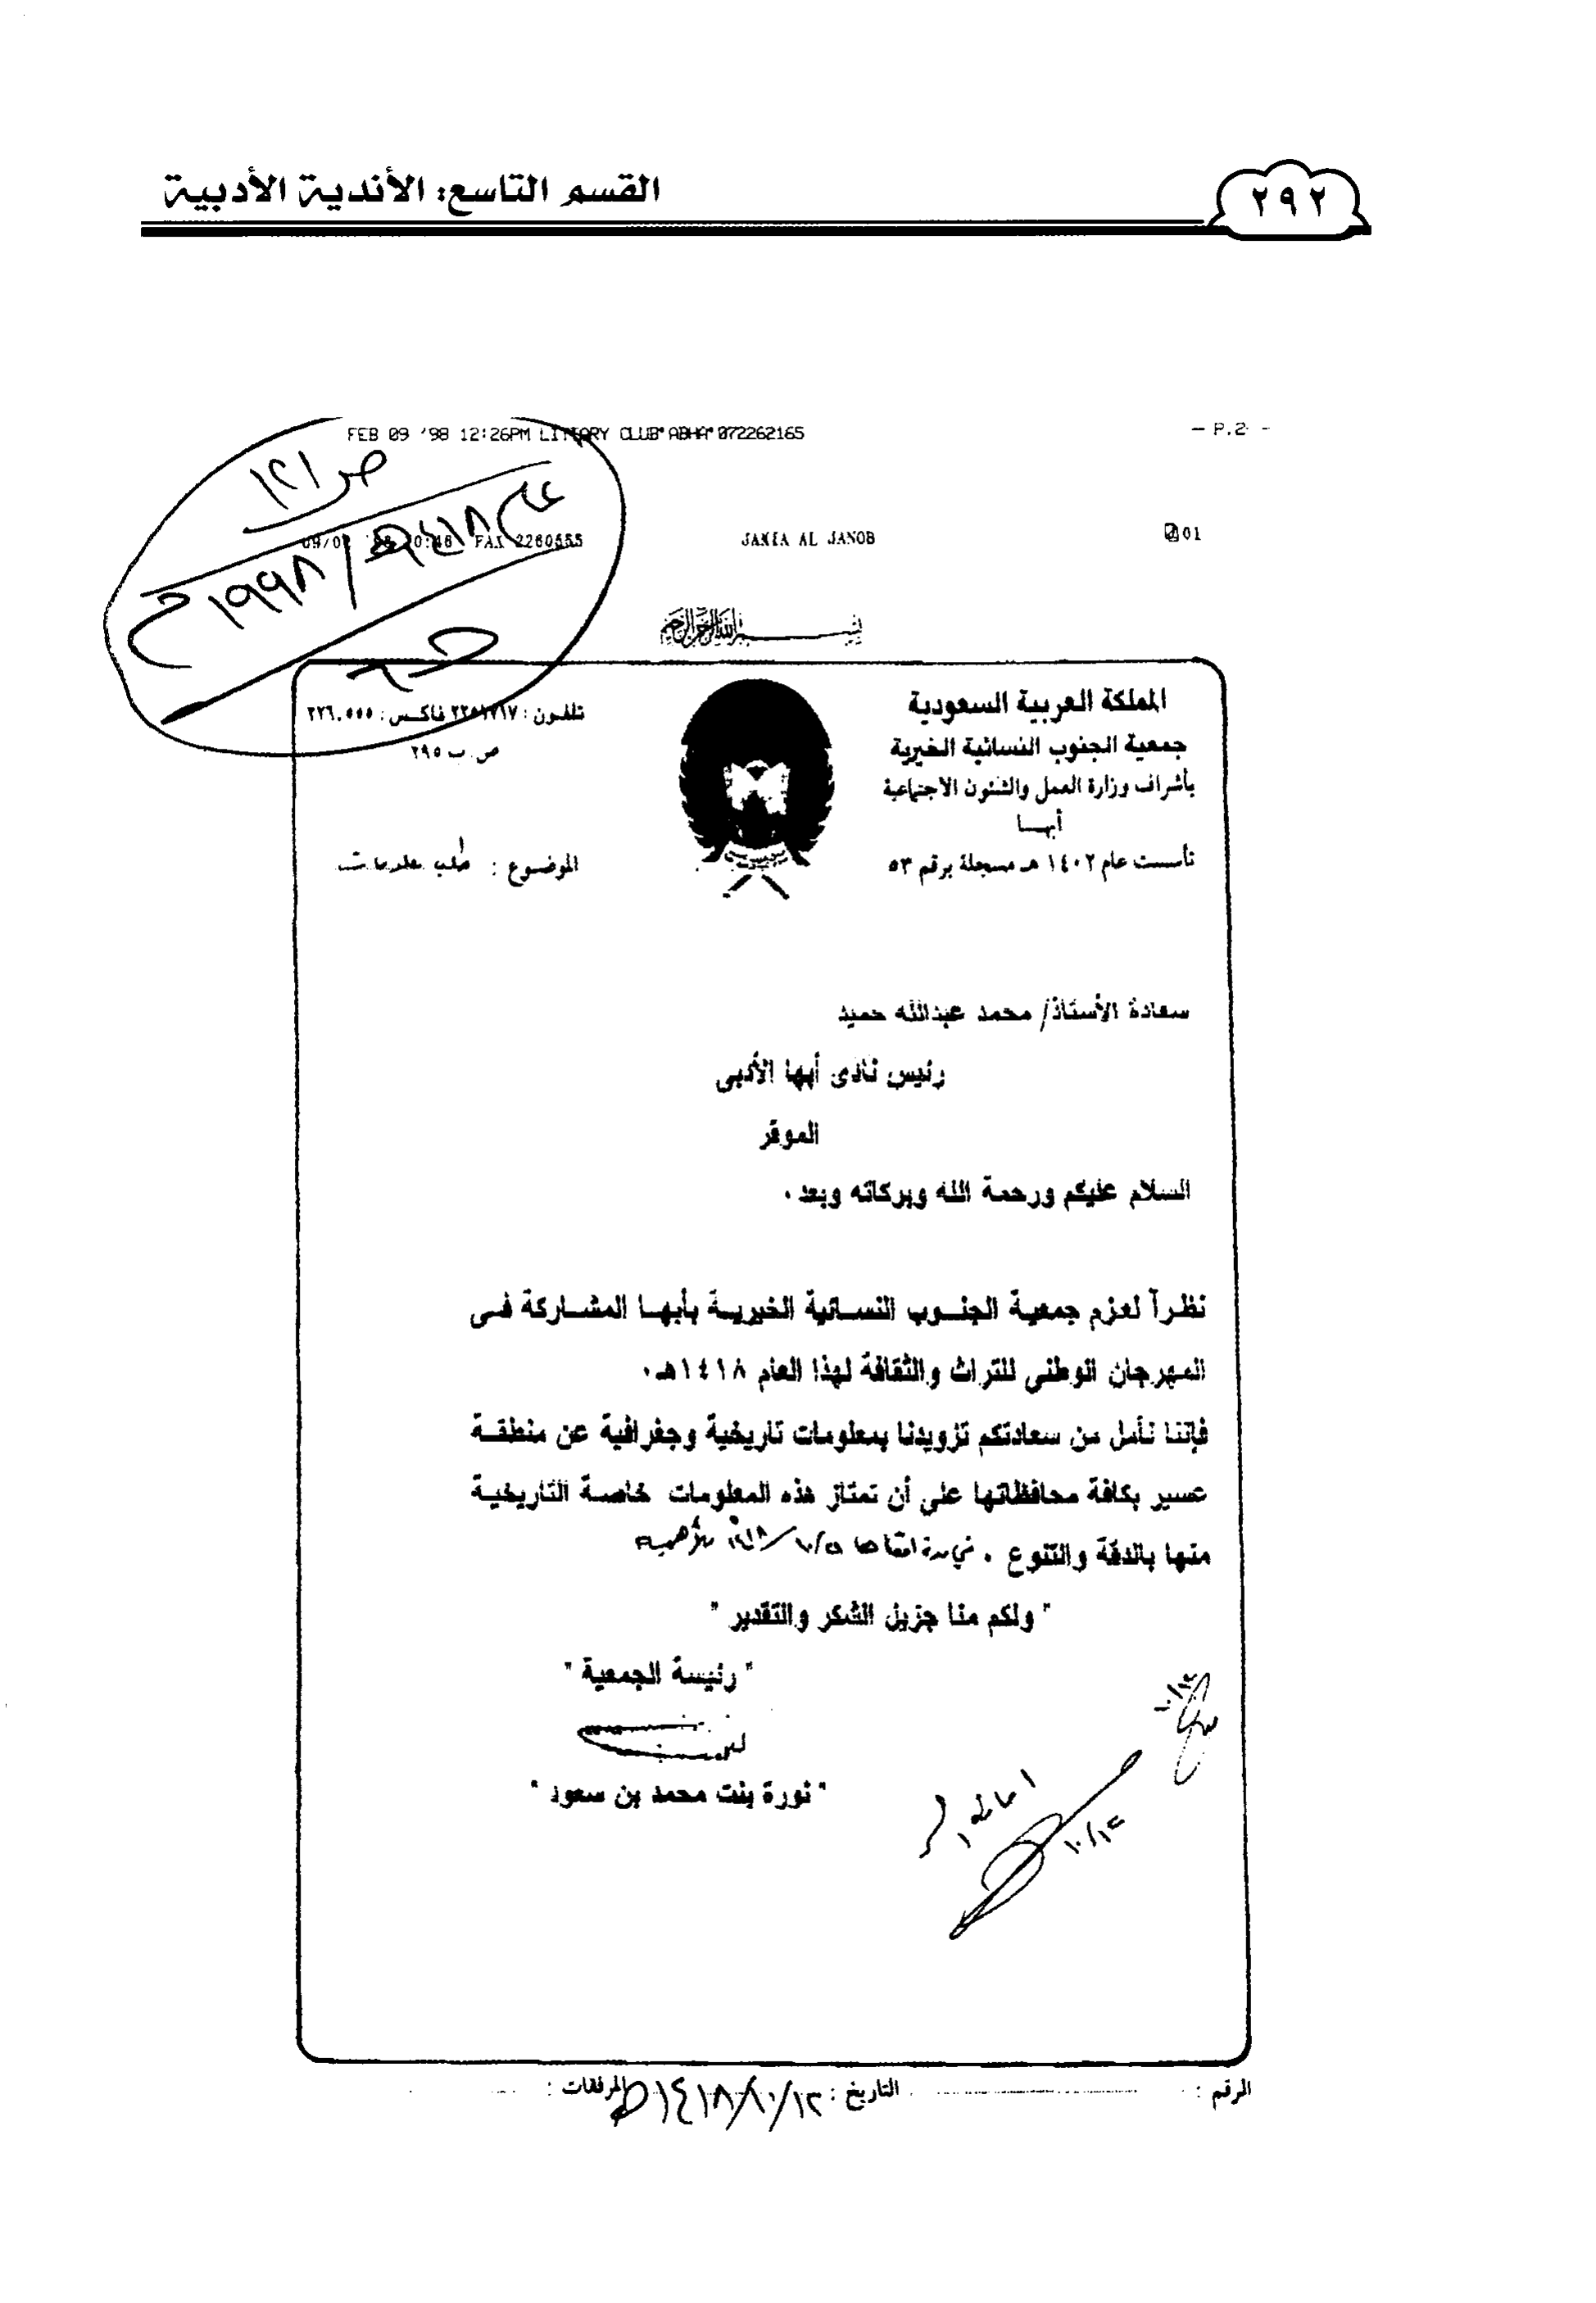 القسم التاسع: الأندية الأدبية
٢٩٢
FEB 09 '98 12:26PM LITRARY CLUB ABHA 072262165
- P.2 -
ص ١٢١
عام ١٤١٨هـ / ١٩٩٨م
FAX 2260555
JAKIA AL JANOB
01
بسم الله الرحمن الرحيم
المملكة العربية السعودية
جمعية الجنوب النسائية الخيرية
بأشراف وزارة العمل والشئون الاجتماعية
أبهـا
تأسست عام ١٤٠٢ هـ مسجلة برقم ٥٣
تلفون : فاكس : ٢٢٦٠٥٥٥
ص. ب ٢٩٥
الموضوع : طلب معلومات
سعادة الأستاذ/ محمد عبدالله حميد
رئيس نادى أبها الأدبى
الموقر
السلام عليكم ورحمة الله وبركاته وبعد .
نظراً لعزم جمعية الجنوب النسائية الخيرية بأبها المشاركة فى
المهرجان الوطنى للتراث والثقافة لهذا العام ١٤١٨هـ .
فإننا نأمل من سعادتكم تزويدنا بمعلومات تاريخية وجغرافية عن منطقة
عسير بكافة محافظاتها على أن تمتاز هذه المعلومات خاصة التاريخية
منها بالدقة والتنوع . في مدة أقصاها
" ولكم منا جزيل الشكر والتقدير "
" رئيسة الجمعية "
" نورة بنت محمد بن سعود "
١٠/١٢
١٠/١٢
الرقم :
التاريخ : ١٢/١٠/١٤١٨هـ
المرفقات :